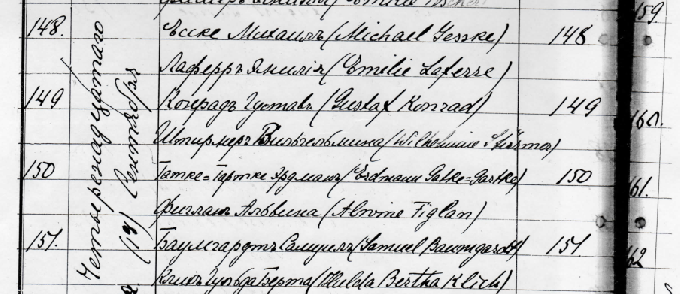 148. Еске Михаилъ (Michael Jeske) 148
Лаферръ Эмилія (Emilie Laferre)
149 Конрадъ Густавъ (Gustaf Konrad) 149 160.
Штирмеръ Вильгельмина (Wilhelmine Stirmer)
150 Гатке-Гертке Эрдманъ (Erdmann Gatke-Gertke) 150 161.
Фигланъ Альвина (Alwine Figlan)
151. Баумгардтъ Самуилъ (Samuel Baumgardt) 151 162
Клихъ Гульда Берта (Hulda Bertha Klich)
159
Четырнадцатаго
(14) Сентября